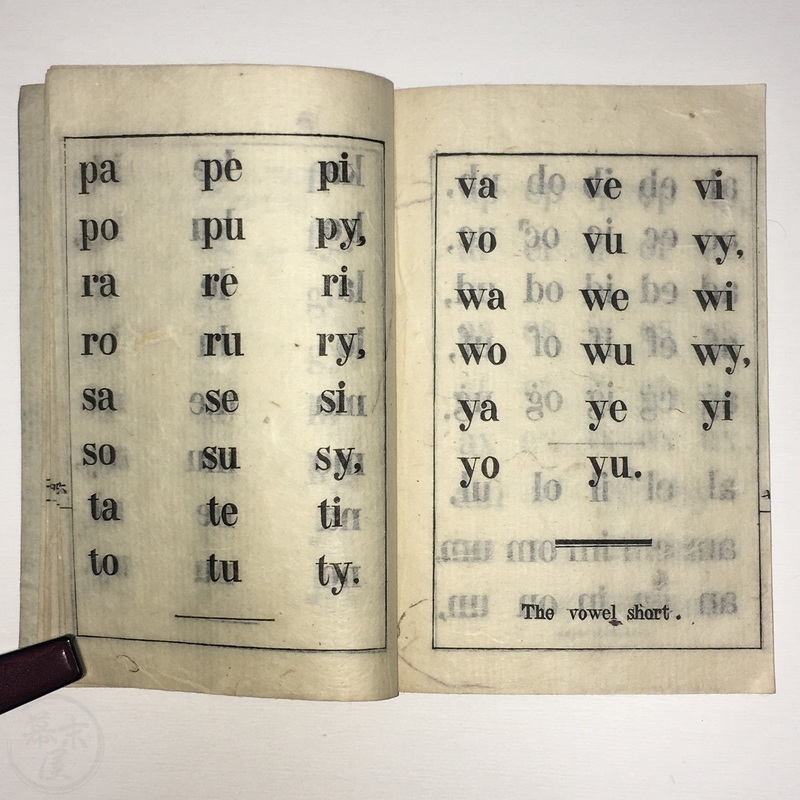 pa pe pi
po pu py,
ra re ri
ro ru ry,
sa se si
so su sy,
ta te ti
to tu ty.
va ve vi
vo vu vy,
wa we wi
wo wu wy,
ya ye yi
yo yu.
The vowel short.
幕末屋